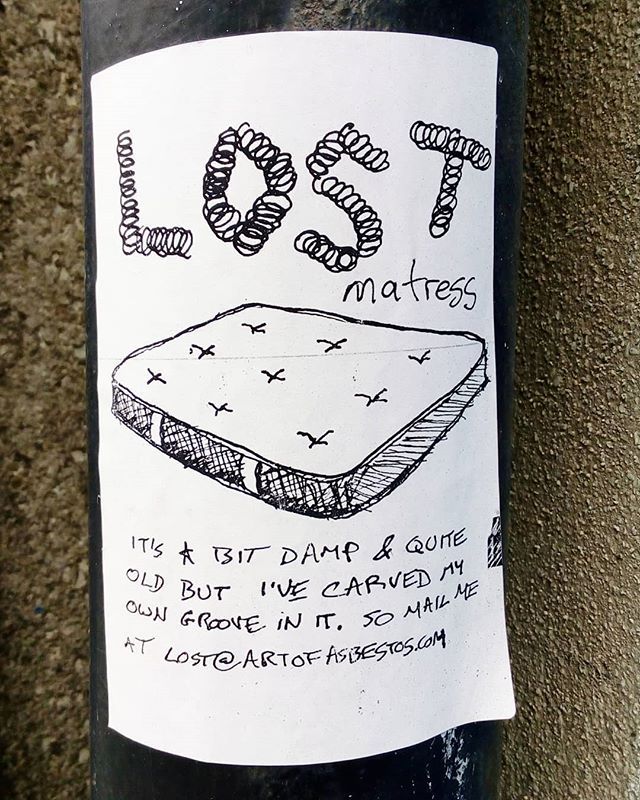 LOST
matress
IT'S A BIT DAMP & QUITE
OLD BUT I'VE CARVED MY
OWN GROOVE IN IT. SO MAIL ME
AT LOST@ARTOFASBESTOS.COM